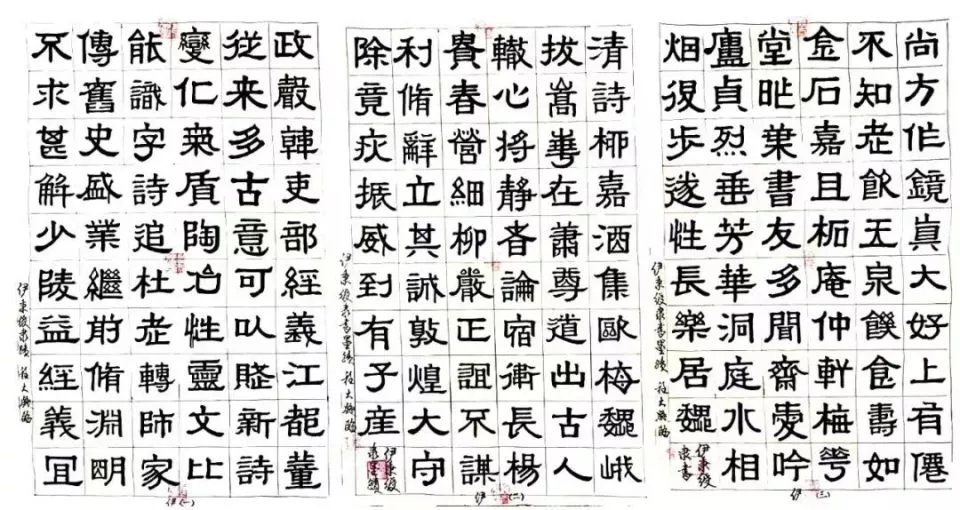 政嚴韓吏部經義江都董
從来多古意可以賦新詩
變化氣質陶冶性靈文比
能識字詩追杜老轉師家
傳舊史盛業繼前脩淵明
不求甚解少陵益經義冝
伊秉綬隸書墨蹟
伊(一)
清詩柳嘉酒集歐梅魏峨
拔嵩華在蕭尊道出古人
轍心將靜吝論宿衛長楊
貴春營細柳嚴正誼不謀
利脩辭立其誠敦煌大守
除竟疢振威到有子産
伊秉綬隸書墨蹟
伊秉綬隸書墨蹟
伊(二)
尚方作鏡真大好上有僊
不知老飲玉泉饑食壽如
金石嘉且柘庵仲軒梅萼
堂葉書友多聞齋愛吟
廬貞烈垂芳華洞庭水相
烟後步遂性長樂居魏
伊秉綬隸書墨蹟
伊秉綬隸書
伊(三)